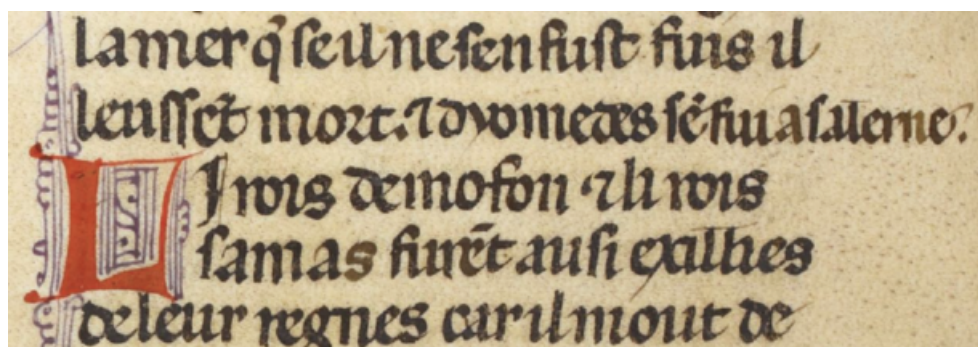 la mer q̃ se il ne sen fust fuis il
leussẽt mort. ⁊ dyomedes sẽ fui a salerne.
LJ rois demofon ⁊ li rois
samas furẽt ausi exillies
de leur regnes car il mout de